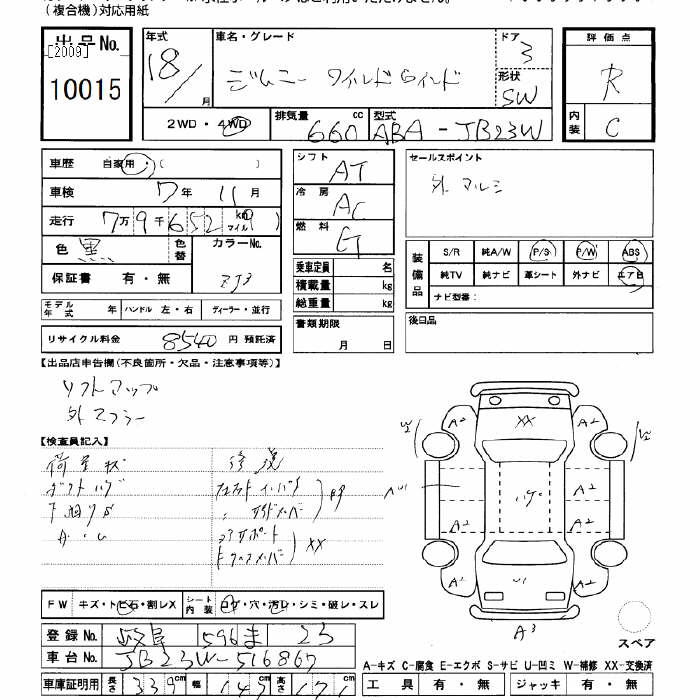 (複合機)対応用紙
出品No.
[2009]
10015
年式
18/
月
車名・グレード
ジムニー ワイルドウインド
ドア
3
形状
SW
評価点
R
内装
C
2WD・4WD
排気量
660
cc
型式
ABA-JB23W
車歴 自家用・( )
車検 7年 11月
走行 7万9千652 km マイル
色 黒
色替
カラーNo.
ZJ3
保証書 有・無
モデル年式 年 ハンドル 左・右 ディーラー・並行
リサイクル料金 8540 円 預託済
シフト AT
冷房 AC
燃料 G
乗車定員 名
積載量 kg
総重量 kg
書類期限
月 日
セールスポイント
外マルミ
装備品
S/R 純A/W P/S P/W ABS
純TV 純ナビ 革シート 外ナビ エアB
ナビ型番:
後日品
【出品店申告欄(不良箇所・欠品・注意事項等)】
リフトアップ
外マフラー
【検査員記入】
下廻りサビ
修復
XX
FW キズ・トビ石・割レX
シート内装 コゲ・穴・汚レ・シミ・破レ・スレ
XX
A2 A2
A2
A2 A2
A2 A2
U1
A3
スペア
登録No. 岐阜 596 ま 23
車台No. JB23W-516867
A-キズ C-腐食 E-エクボ S-サビ U-凹ミ W-補修 XX-交換済
車庫証明用 長さ 339 cm 幅 147 cm 高さ 171 cm
工具 有・無 ジャッキ 有・無